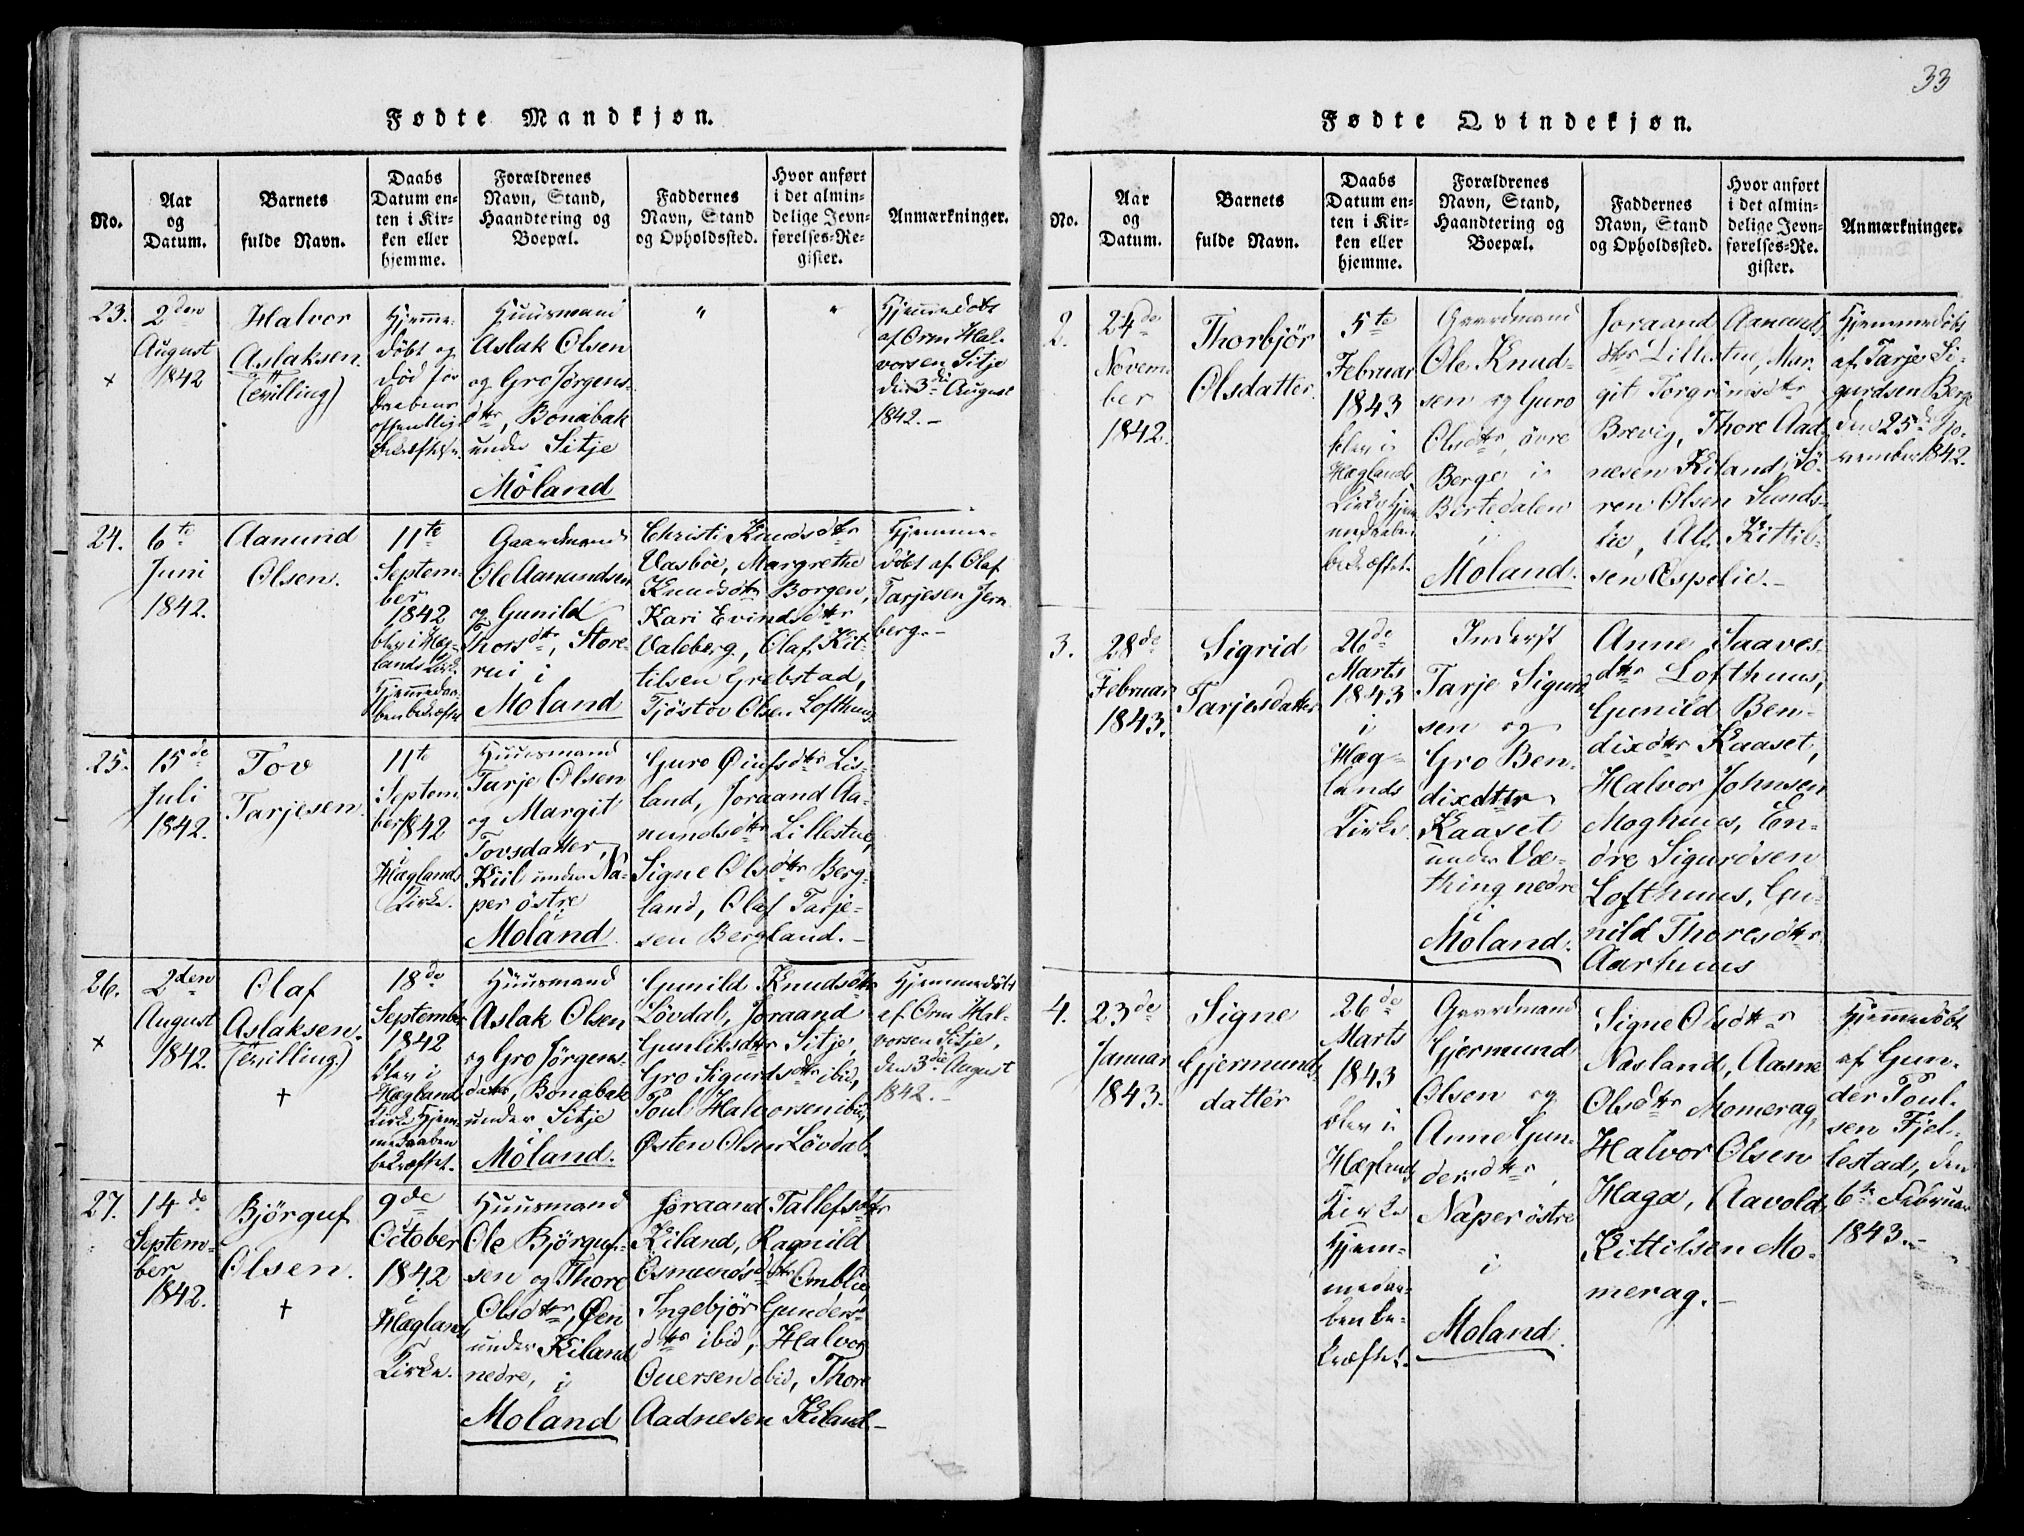 33
Fødte Mandkjøn.
No.
Aar
og
Datum.
Barnets
fulde Navn.
Daabs
Datum en-
ten i Kir-
ken eller
hjemme.
Forældrenes
Navn, Stand,
Haandtering og
Boepæl.
Faddernes
Navn, Stand
og Opholdssted.
Hvor anført
i det almin-
delige Jevn-
førelses-Re-
gister.
Anmærkninger.
23.
2den
August
1842
+
Halvor
Aslaksen.
(Tvilling)
Hjemme-
døbt og
død før
Daabens
offentlige
Bekræftelse.
Huusmand
Aslak Olsen
og Gro Jørgens-
dtr, Bonabak
under Sitje
i
Moland
"
"
Hjemmedøbt
af Orm Hal-
vorsen Sitje
den 3die August
1842.-
24.
6te
Juni
1842.
Aanund
Olsen.
11te
Septem-
ber
1842
blev i Hæg-
lands Kirke
Hjemmedaa-
ben bekræftet
Gaardmand
Ole Aanundsen
og Gunild
Thorsdtr, Store-
rui i
Moland
Christi Knudsdtr
Vasbøe, Margrethe
Knudsdtr Borgen,
Kari Evindsdtr
Valeberg, Olaf Kit-
tilsen Grebstad,
Tjøstov Olsen Lofthuus.
Hjemme-
døbt af Olaf
Tarjesen Jern
berg.-
25.
15de
Juli
1842.
Tov
Tarjesen.
11te
Septem-
ber 1842
i
Hæglands
Kirke.
Huusmand
Tarje Olsen
og Margit
Tovsdatter,
Kiil under Na-
per østre
i
Moland.
Guro Øiufsdtr Lis-
land, Joraand Aa-
nundsdtr Lillestue,
Signe Olsdtr Berg-
land, Olaf Tarje-
sen Bergland.-
26.
2den
August
1842.
+
Olaf
Aslaksen.
(Tvilling)
+
18de
September
1842
blev i
Hægland
Kirke Hjem-
medaaben
bekræftet.
Huusmand
Aslak Olsen
og Gro Jørgens-
datter, Bonabak
under Sitje
i
Moland.
Gunild Knudsdtr
Løvdal, Joraand
Gunliksdtr Sitje,
Gro Sigurdsdtr ibid,
Poul Halvorsen ibid,
Østen Olsen Løvdal.
Hjemmedøbt
af Orm Hal-
vorsen Sitje,
den 3die August
1842.-
27.
14de
Septem-
ber
1842.
Bjørguf
Olsen.
+
9de
October
1842
i
Hægland
Kirke.
Huusmand
Ole Bjørguf-
sen og Thore
Olsdtr, Øen
under Kiland
nedre, i
Moland
Joraand Tallefsdtr
Kiland, Ragnild
Osmundsdtr Omblie,
Ingebjør Gunders-
dtr ibid, Halvor
Ouersen ibid, Thore
Aadnesen Kiland-
Fødte Qvindekjøn.
No.
Aar
og
Datum.
Barnets
fulde Navn.
Daabs
Datum en-
ten i Kir-
ken eller
hjemme.
Forældrenes
Navn, Stand,
Haandtering og
Boepæl.
Faddernes
Navn, Stand
og Opholdssted.
Hvor anført
i det almin-
delige Jevn-
førelses-Re-
gister.
Anmærkninger.
2.
24de
Novem-
ber
1842.
Thorbjør
Olsdatter.
5te
Februar
1843
blev i
Hæglands
Kirke Hjem
medaaben
bekræftet.
Gaardmand
Ole Knud-
sen og Guro
Olsdtr, øvre
Berge i
Bortedalen
i
Moland.
Joraand Aanunds
dtr Lillestue, Mar-
git Torgrimsdtr
Brevig, Thore Aad-
nesen Kiland, Sø-
ren Olsen Lunds-
lie, Ah. Kittil-
sen Espelie.-
Hjemmedøbt
af Tarje Si-
gurdsen Berge
den 25de No-
vember 1842.
3.
28de
Februar
1843.
Sigrid
Tarjesdatter
26de
Marts
1843
i
Hæg-
lands
Kirke
Inderst
Tarje Sigurd
sen og
Gro Ben-
dixdtter,
Kaaset
under Væ-
thing nedre
i
Moland.
Anne Taaves-
dtr Lofthuus,
Gunild Ben-
dixdtr Kaaset,
Halvor Johnsen
Moghuus, En-
dre Sigurdsen
Lofthuus, Gu-
nild Thoresdtr
Aarhuus
4.
23de
Januar
1843.
Signe
Gjermunds-
datter
26de
Marts
1843
blev i
Hægland
Kirke
Hjem-
medaa-
ben be-
kræftet.
Gaardmand
Gjermund
Olsen og
Anne Gun-
dersdtr,
Naper østre
i
Moland.
Signe Olsdtr
Næsland, Aasne
Olsdtr Momerag,
Halvor Olsen
Haga, Aavold
Kittilsen Mo-
merag.-
Hjemmedøbt
af Gun-
der Poul-
sen Fjel-
lestad, den
6te Februar
1843.-